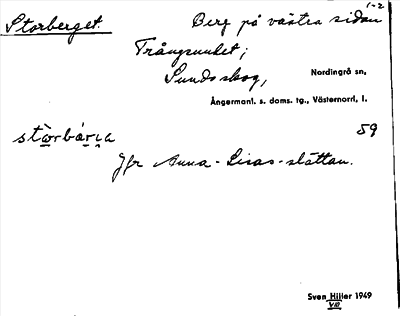 Storberget. Berg på västra sidan 1-2
Trångsundet;
Sundsskog, Nordingrå sn,
Ångermanl. s. doms. tg., Västernorrl. l.
stòrbárja 59
Jfr Anna-Lisas-slåttan.
Sven Hiller 1949
VIII